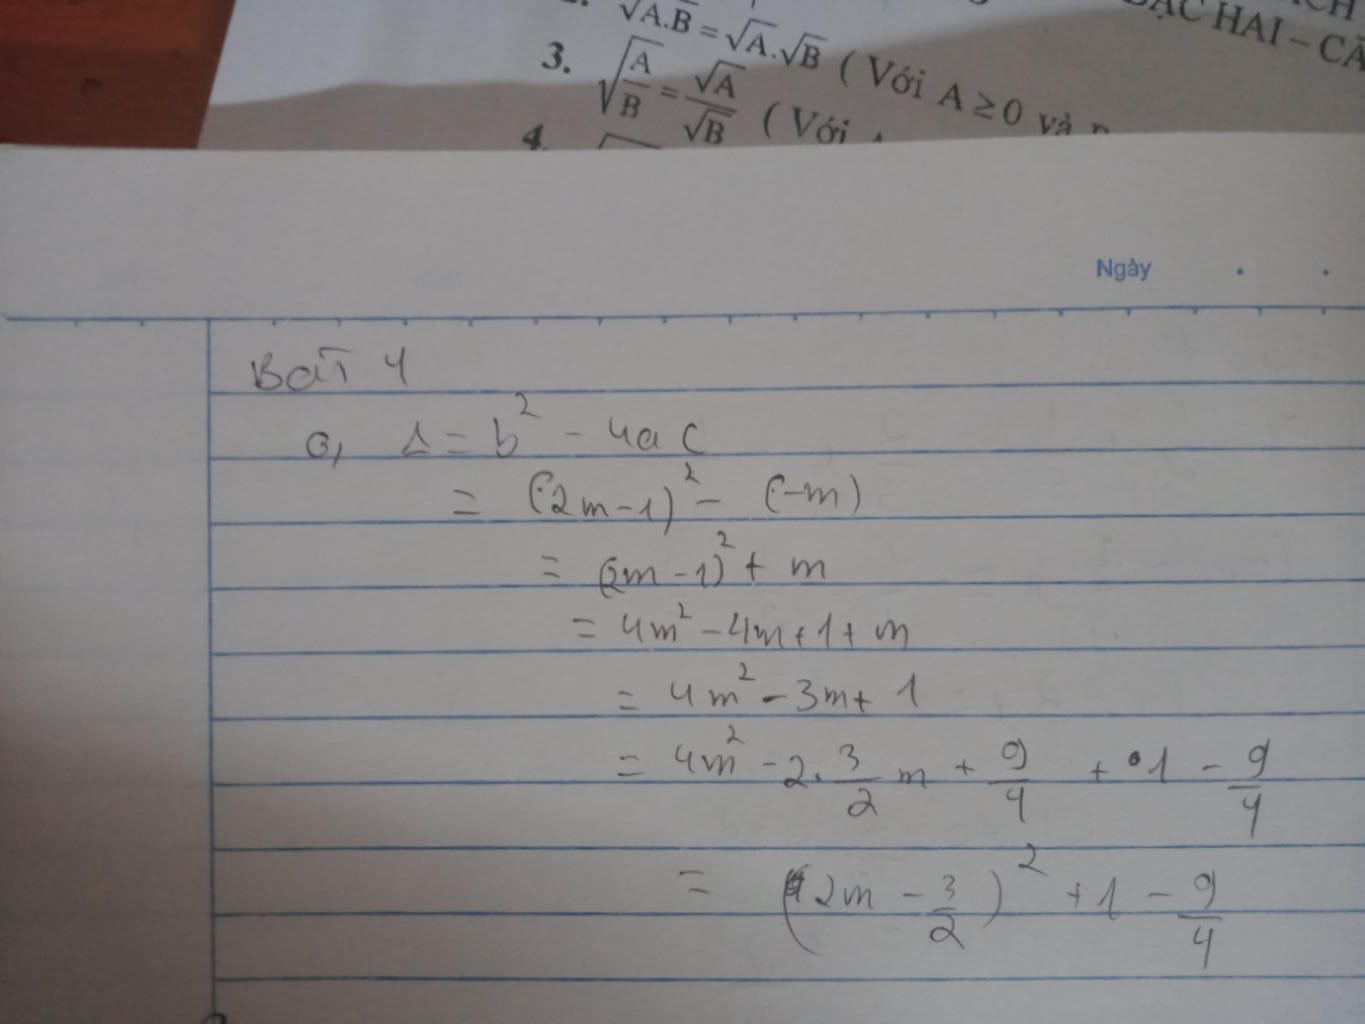 √A.B = √A.√B ( Với A ≥ 0 và
BẬC HAI – CĂ
3. √(A/B) = √A/√B ( Với
4.
Ngày
Bài 4
a, Δ = b² - 4ac
= (2m-1)² - (-m)
= (2m-1)² + m
= 4m² - 4m + 1 + m
= 4m² - 3m + 1
= 4m² - 2. 3/2 m + 9/4 + 1 - 9/4
= (2m - 3/2)² + 1 - 9/4